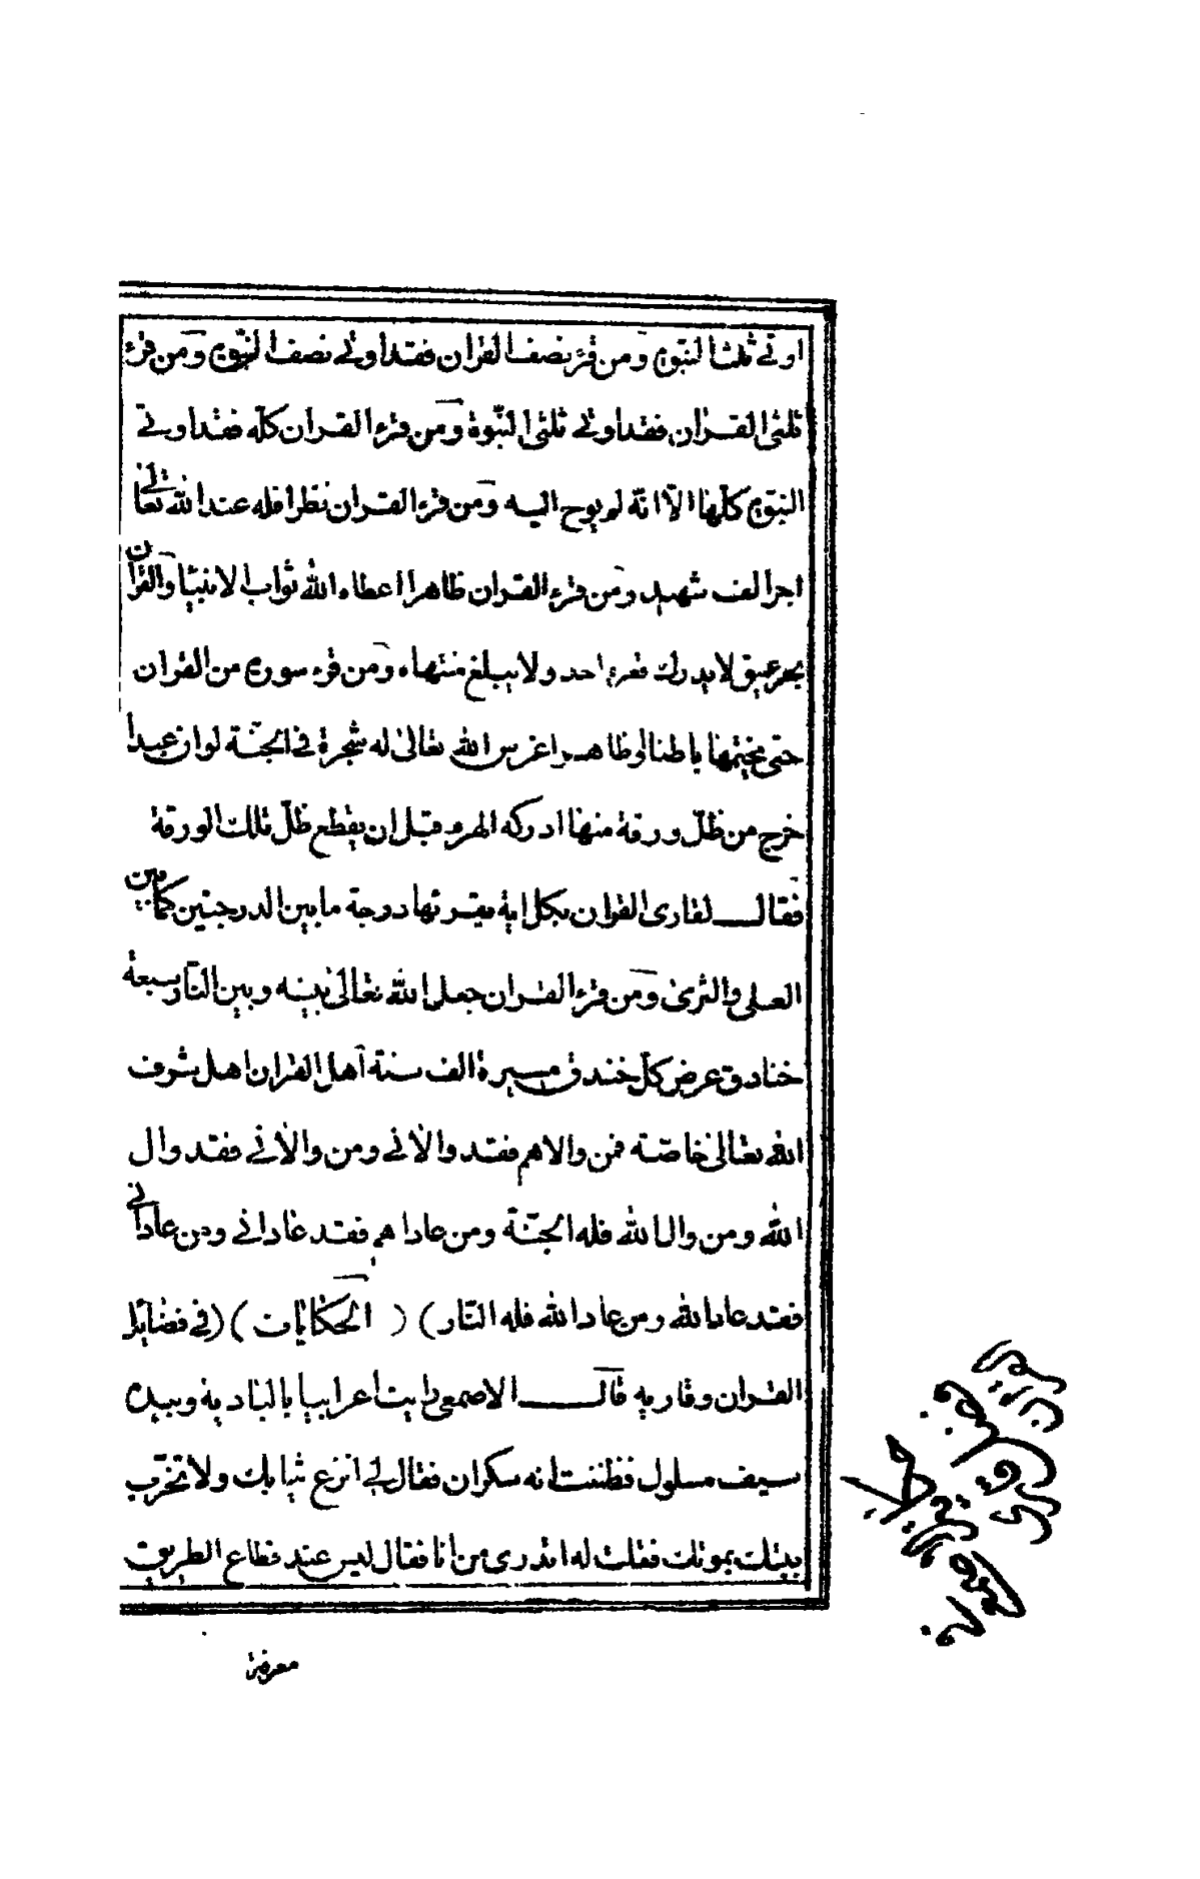 اوتى ثلث النبوة ومن قرء نصف القران فقد اوتى نصف النبوة ومن قرء
ثلثى القران فقد اوتى ثلثى النبوة ومن قرء القران كله فقد اوتى
النبوة كلها الا انه لم يوح اليه ومن قرء القران نظرا فله عند الله تعالى
اجر الف شهيد ومن قرء القران ظاهرا اعطاه الله ثواب الانبيا والقران
بحر عميق لا يدرك قعره احد ولا يبلغ منتهاه ومن قرء سورة من القران
حتى يختمها باطنا او ظاهرا غرس الله تعالى له شجرة فى الجنة لو ان عبدا
خرج من ظل ورقة منها ادركه الهرم قبل ان يقطع ظل تلك الورقة
فقال لقارى القران بكل اية يقرئها درجة ما بين الدرجتين كما بين
العلى والثرى ومن قرء القران جعل الله تعالى بينه وبين النار سبعة
خنادق عرض كل خندق مسيرة الف سنة اهل القران اهل شرف
الله تعالى خاصة فمن والاهم فقد والانى ومن والانى فقد وال
الله ومن وال الله فله الجنة ومن عاداهم فقد عادانى ومن عادانى
فقد عاد الله ومن عاد الله فله النار ) ( الحكايات ) ( فى فضايل
القران وقاريه قال الاصمعى رايت اعرابيا بالبادية وبيده
سيف مسلول فظننت انه سكران فقال لى انزع ثيابك ولا تخرب
بيتك بموتك فقلت له اتدرى من انا فقال ليس عند قطاع الطريق
معرفة